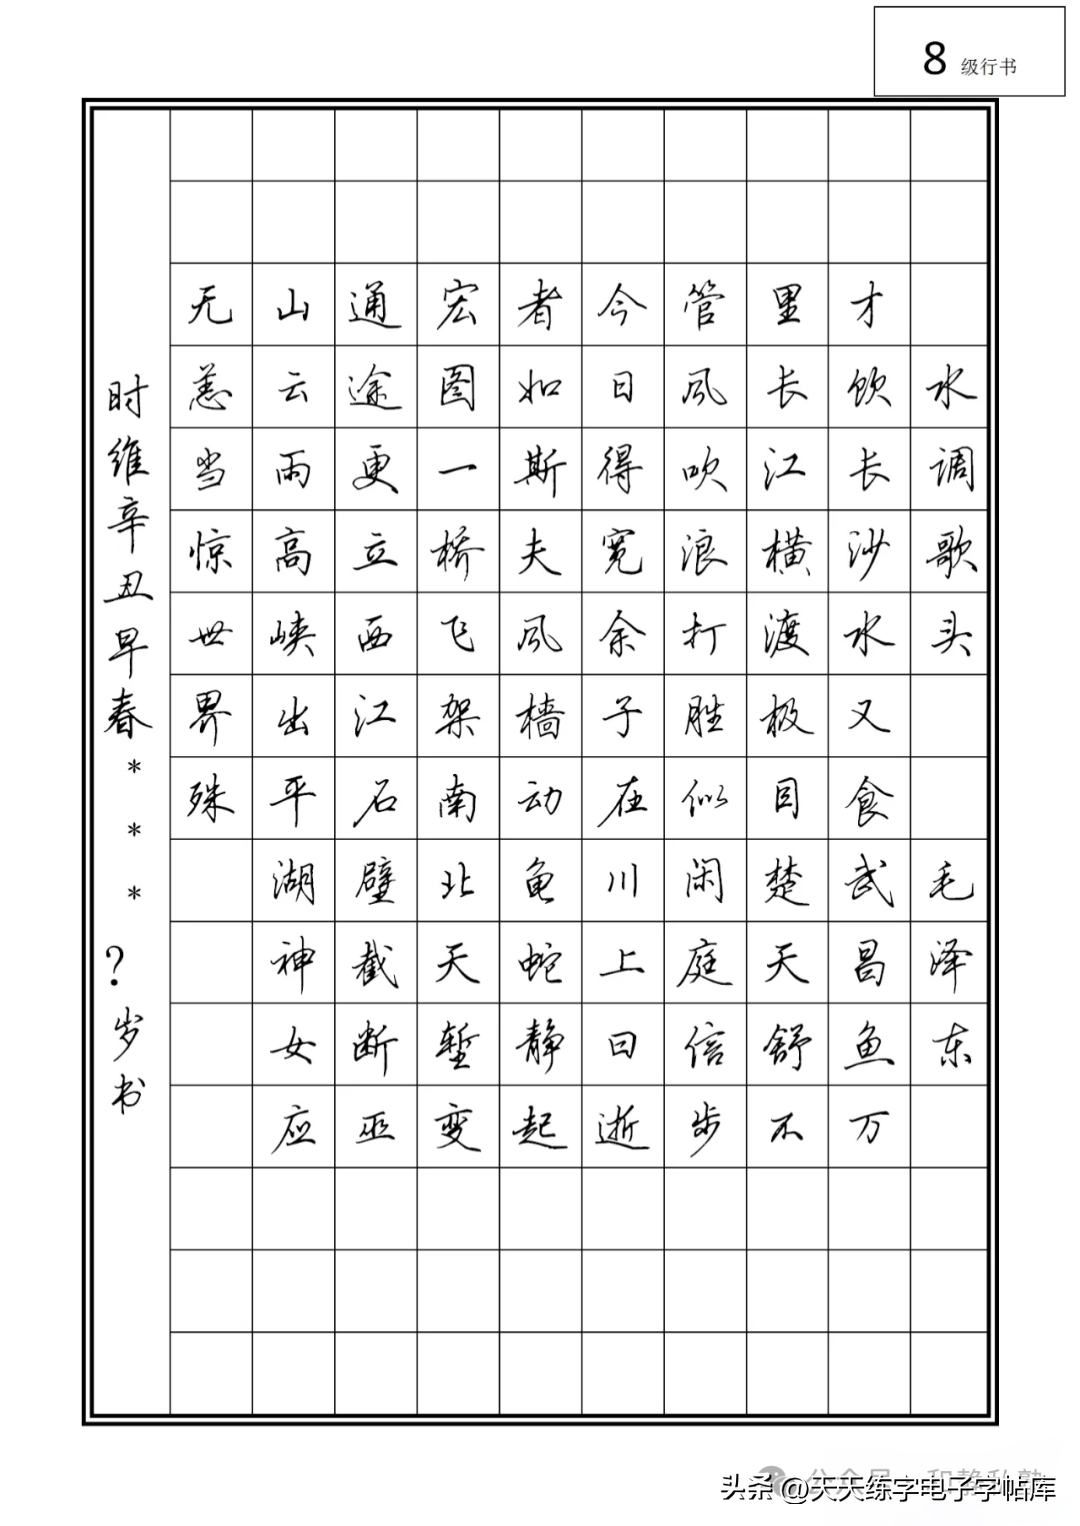 8 级行书
水调歌头 毛泽东
才饮长沙水又食武昌鱼万
里长江横渡极目楚天舒不
管风吹浪打胜似闲庭信步
今日得宽余子在川上曰逝
者如斯夫风樯动龟蛇静起
宏图一桥飞架南北天堑变
通途更立西江石壁截断巫
山云雨高峡出平湖神女应
无恙当惊世界殊
时维辛丑早春*** ?岁书
头条 @天天练字电子字帖库